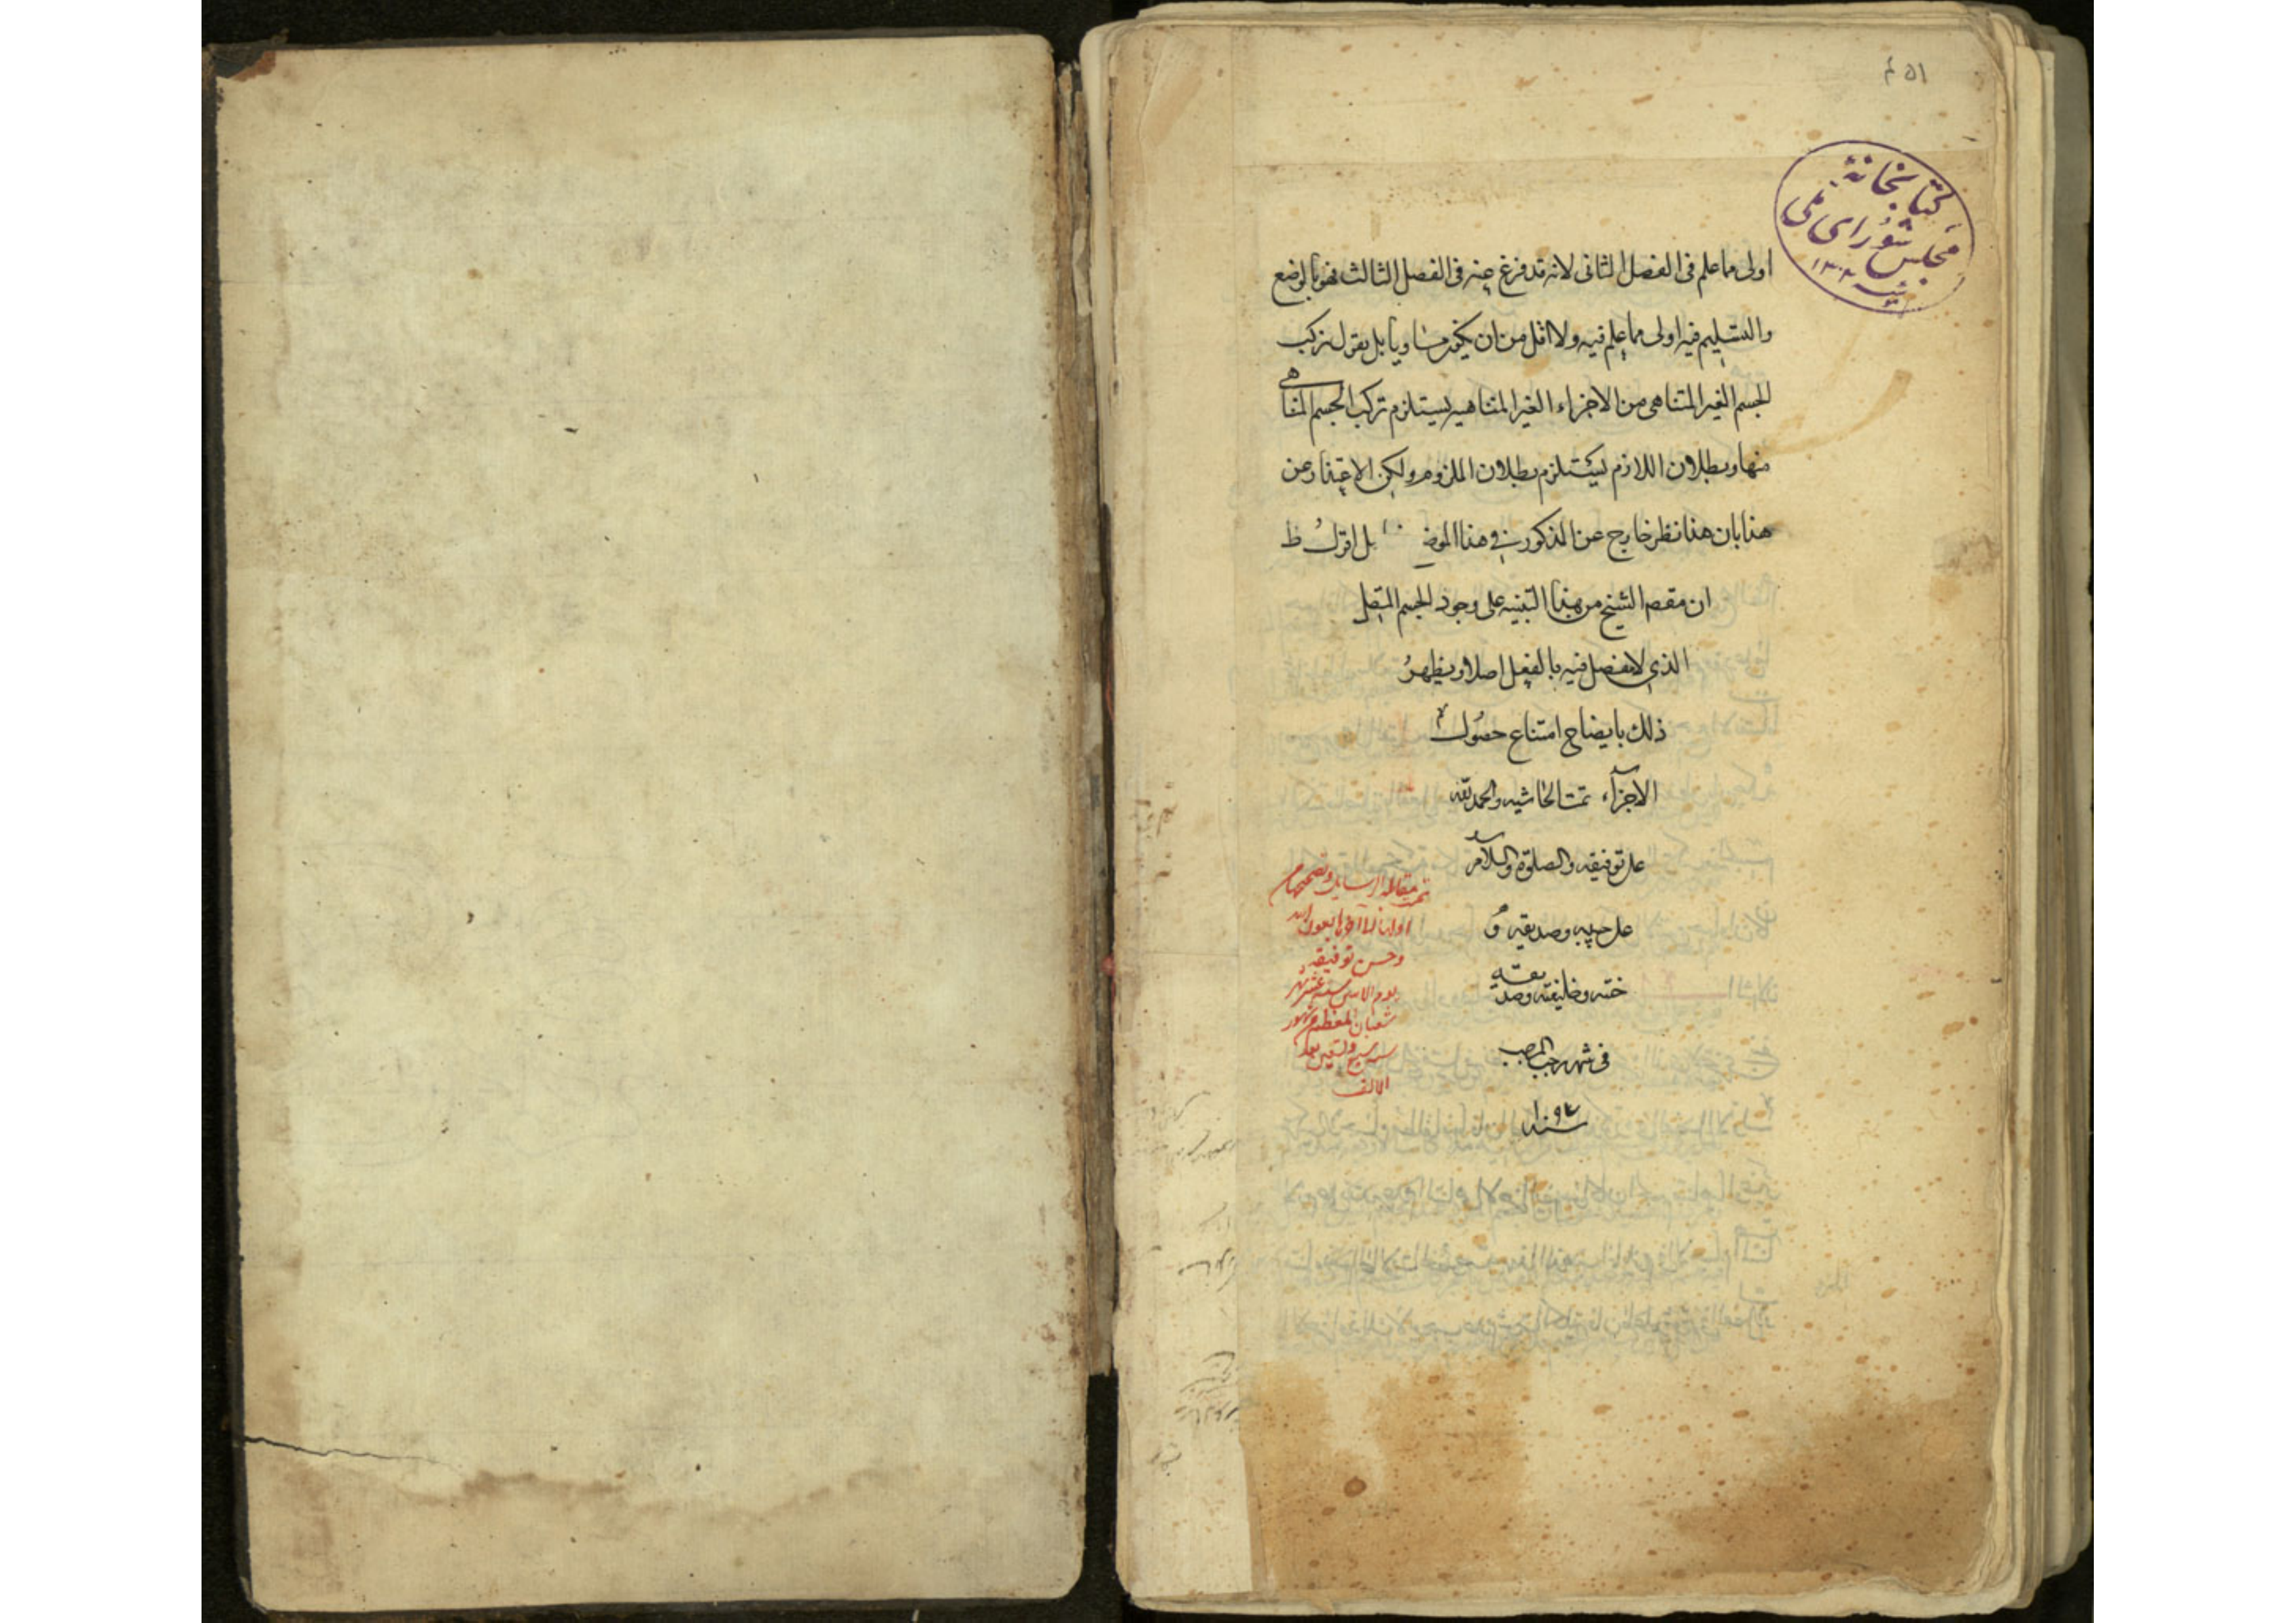 ۵۱م
كتابخانه
مجلس شورای ملی
اولى مما علم فى الفصل الثانى لانه قد فرغ عنه فى الفصل الثالث فهو بالوضع
والتسليم فيه اولى مما علم فيه ولا اقل من ان يكون مساويا بل يقول تركب
الجسم الغير المتناهى من الاجزاء الغير المتناهيه يستلزم تركب الجسم المتناهى
منها وبطلان اللازم يستلزم بطلان الملزوم ولكن الاعتذار عن
هذا بان هذا نظر خارج عن المذكور فى هذا الموضع بل اقول ظ
ان مقصد الشيخ من هذا التنبيه على وجود الجسم المتصل
الذى لا مفصل فيه بالفعل اصلا ويظهر
ذلك بايضاح امتناع حصول
الاجزاء تمت الحاشيه والحمد لله
على توفيقه والصلوة والسلام
على حبيبه وصديقه و
ختنه وخليفته
فى شهر رجب المرجب
سنة ۱۰۹۷
وحسن توفيقه
شعبان المعظم
سنه سبع وتسعين بعد
الالف